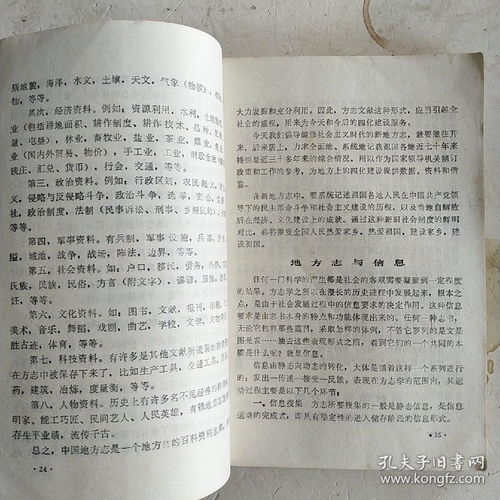 质地貌，海洋，水文，土壤，天文，气象（物候），
物，等等。
其次，经济资料。例如：资源利用，水利，土地
业（包括耕地面积、耕作制度、耕作技术、品种、
量、屯垦），林业，畜牧业，盐业，茶业，
业（国内外贸易、物价），手工业，工业，财政金融
钱庄、汇兑、货币），行会，交通，等等。
第三，政治资料。例如，行政区划，农民起义，
义，侵略与反侵略斗争，政治斗争，选举，吏治，
社，政治制度，法制（民事诉讼、刑事、乡规民约），
等。
第四，军事资料。有兵制，军事设施，兵器，
隘，城池，战争，战场，阵法，边界，等等。
第五，社会资料。如：户口，移民，劳务，
氏族，民族，民俗，方言（附文字），谚语，
狂，等等。
第六，文化资料。如：图书，文献，报刊，印刷，
美术，音乐，舞蹈，戏剧，曲艺，学校，文学，文物
胜古迹，体育，等等。
第七，科技资料。有许多是其他文献所遗漏
在方志中被保存下来了，比如生产工具，交通工具，
药，建筑，冶炼，度量衡，等等。
第八，人物资料。历史上有许多名不见经传的科学
明家、能工巧匠、民间艺人、人民英雄，有赖地方志
存生平业绩，流传千古。
总之，中国地方志是一个地方的百科资料宝库，
· 24 ·
大力发掘和充分利用。因此，方志文献这种形式，应当引起全
社会的重视，用来为今天和今后的四化建设服务。
今天我们倡导编修社会主义时代的新地方志，就要继往开
来，后来居上，力求全面地、系统地记载祖国各地近七十年来
特别是近三十多年来的综合情况，用以作为国家领导机关制订
政策和工作的参考，为地方上的四化建设提供数据、资料和借
鉴。
在新地方志中，要系统记述祖国各地人民在中国共产党领
导下的民主革命斗争和社会主义建设的历程，以及当地自解放
后在经济、文化建设上的成就。通过这种新旧社会制度的鲜明
对比，必将激发全国人民热爱家乡、热爱祖国，建设家乡、建
设祖国。
地方志与信息
任何一门科学的产生都是社会的客观需要凝聚到一定程度
的结果。方志学之所以在漫长的历史进程中发展起来，根本之
点，是由于社会发展过程中的信息要求的决定作用。这种信息
要求是在方志本身的特点和功能体现出来的。任何一种志书，
无论它包容那些篇目，采取怎样的体例，不管它罗列的是文是
图是表……抽去这些表现形式之后，看到它们的一个共同的本
质是什么呢？就是信息。
信息由静态向动态的转化，大体是循着这样一个系列进行
的：发出—传递—接受—反馈。表现在方志学的范围内，其运
动过程主要是以下几个环节：
一、信息搜集　方志所要搜集的一般是静态信息，是信息
运动的完成式，即具有稳定性的进入储存阶段的信息形式。
· 25 ·
孔夫子旧书网